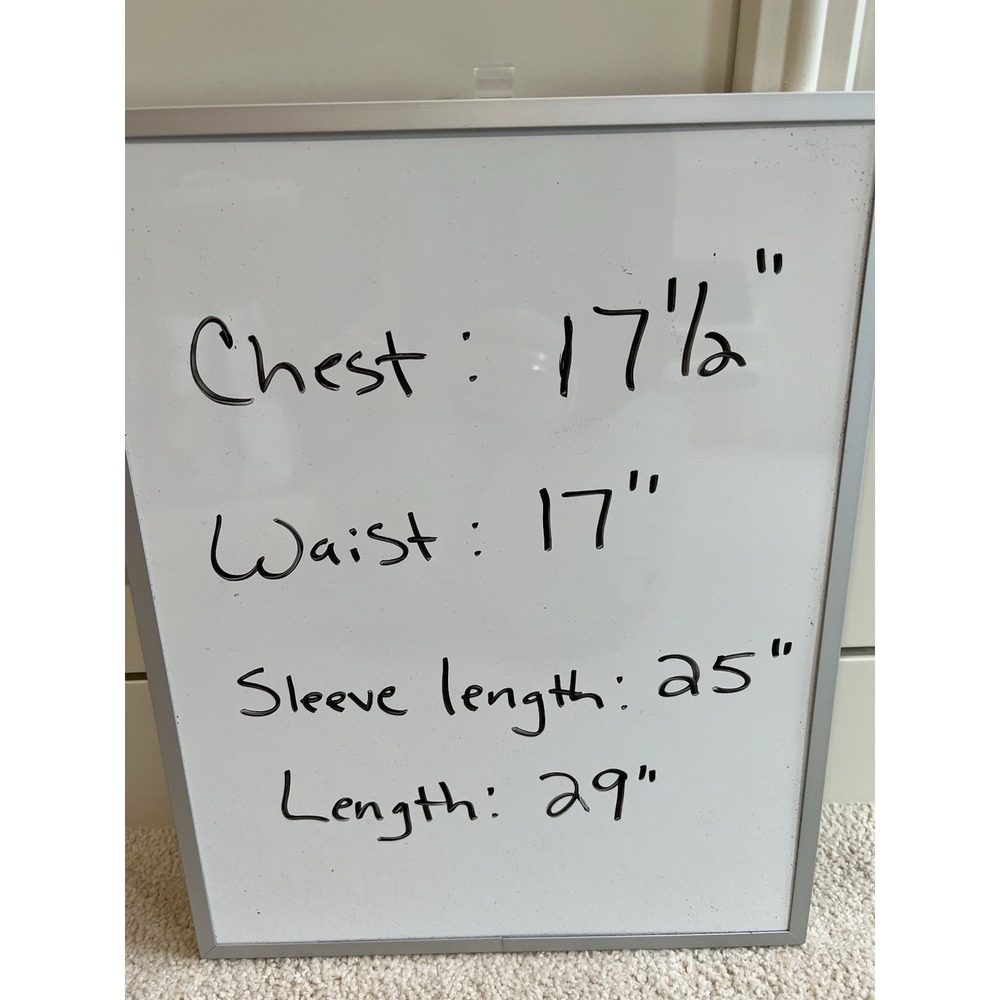 Chest: 17 1/2"
Waist: 17"
Sleeve length: 25"
Length: 29"